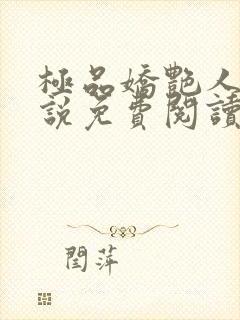 極品嬌艷人
說免費閱讀
閆萍